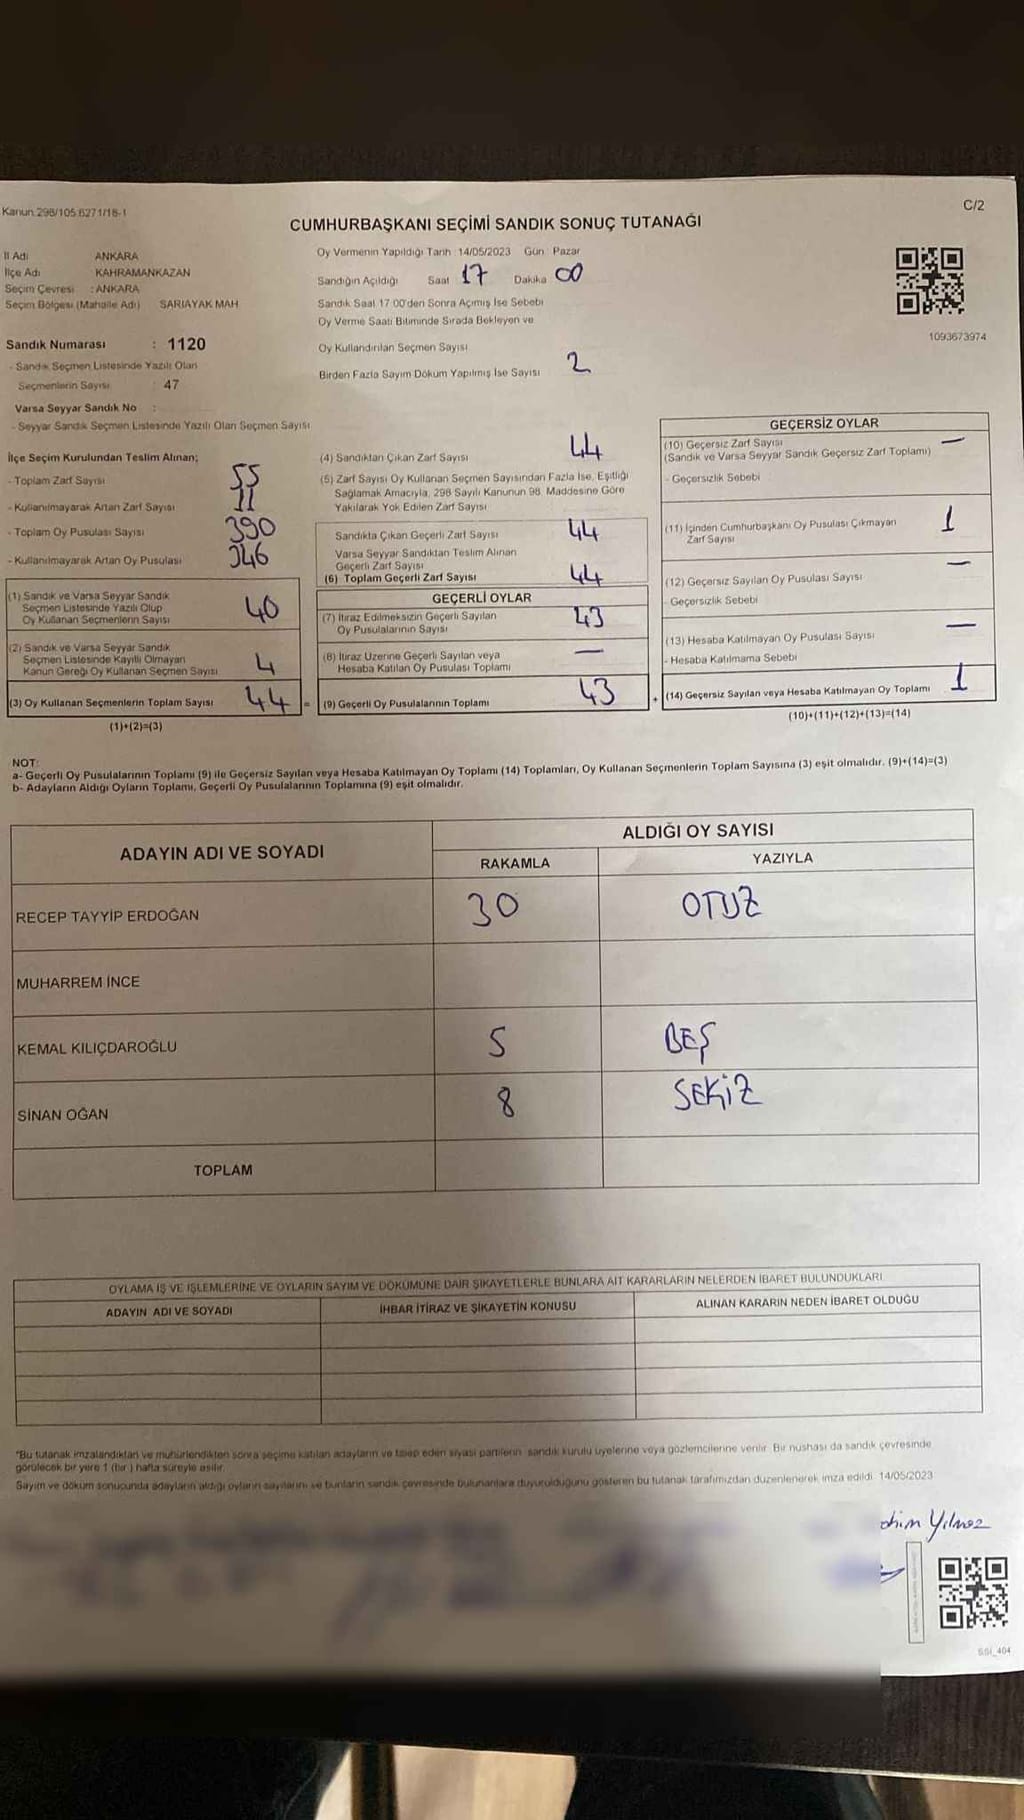 Kanun 298/105 6271/16-1
C/2
CUMHURBAŞKANI SEÇİMİ SANDIK SONUÇ TUTANAĞI
İl Adı ANKARA
İlçe Adı KAHRAMANKAZAN
Seçim Çevresi : ANKARA
Seçim Bölgesi (Mahalle Adı) SARIAYAK MAH
Sandık Numarası : 1120
- Sandık Seçmen Listesinde Yazılı Olan
Seçmenlerin Sayısı : 47
Varsa Seyyar Sandık No :
- Seyyar Sandık Seçmen Listesinde Yazılı Olan Seçmen Sayısı
Oy Vermenin Yapıldığı Tarih 14/05/2023 Gün Pazar
Sandığın Açıldığı Saat 17 Dakika 00
Sandık Saat 17.00'den Sonra Açımış İse Sebebi
Oy Verme Saati Bitiminde Sırada Bekleyen ve
Oy Kullandırılan Seçmen Sayısı
Birden Fazla Sayım Döküm Yapılmış İse Sayısı 2
1093673974
İlçe Seçim Kurulundan Teslim Alınan;
- Toplam Zarf Sayısı 55
- Kullanılmayarak Artan Zarf Sayısı 11
- Toplam Oy Pusulası Sayısı 390
- Kullanılmayarak Artan Oy Pusulası 346
(1) Sandık ve Varsa Seyyar Sandık
Seçmen Listesinde Yazılı Olup
Oy Kullanan Seçmenlerin Sayısı 40
(2) Sandık ve Varsa Seyyar Sandık
Seçmen Listesinde Kayıtlı Olmayan
Kanun Gereği Oy Kullanan Seçmen Sayısı 4
(3) Oy Kullanan Seçmenlerin Toplam Sayısı 44 =
(1)+(2)=(3)
(4) Sandıktan Çıkan Zarf Sayısı 44
(5) Zarf Sayısı Oy Kullanan Seçmen Sayısından Fazla İse, Eşitliği
Sağlamak Amacıyla, 298 Sayılı Kanunun 98. Maddesine Göre
Yakılarak Yok Edilen Zarf Sayısı
Sandıkta Çıkan Geçerli Zarf Sayısı 44
Varsa Seyyar Sandıktan Teslim Alınan
Geçerli Zarf Sayısı
(6) Toplam Geçerli Zarf Sayısı 44
GEÇERLİ OYLAR
(7) İtiraz Edilmeksizin Geçerli Sayılan
Oy Pusulalarının Sayısı 43
(8) İtiraz Üzerine Geçerli Sayılan veya
Hesaba Katılan Oy Pusulası Toplamı —
(9) Geçerli Oy Pusulalarının Toplamı 43 +
GEÇERSİZ OYLAR
(10) Geçersiz Zarf Sayısı —
(Sandık ve Varsa Seyyar Sandık Geçersiz Zarf Toplamı)
- Geçersizlik Sebebi
(11) İçinden Cumhurbaşkanı Oy Pusulası Çıkmayan 1
Zarf Sayısı
(12) Geçersiz Sayılan Oy Pusulası Sayısı —
- Geçersizlik Sebebi
(13) Hesaba Katılmayan Oy Pusulası Sayısı —
- Hesaba Katılmama Sebebi
(14) Geçersiz Sayılan veya Hesaba Katılmayan Oy Toplamı 1
(10)+(11)+(12)+(13)=(14)
NOT:
a- Geçerli Oy Pusulalarının Toplamı (9) ile Geçersiz Sayılan veya Hesaba Katılmayan Oy Toplamı (14) Toplamları, Oy Kullanan Seçmenlerin Toplam Sayısına (3) eşit olmalıdır. (9)+(14)=(3)
b- Adayların Aldığı Oyların Toplamı, Geçerli Oy Pusulalarının Toplamına (9) eşit olmalıdır.
ADAYIN ADI VE SOYADI
ALDIĞI OY SAYISI
RAKAMLA YAZIYLA
RECEP TAYYİP ERDOĞAN 30 OTUZ
MUHARREM İNCE
KEMAL KILIÇDAROĞLU 5 BEŞ
SİNAN OĞAN 8 SEKİZ
TOPLAM
OYLAMA İŞ VE İŞLEMLERİNE VE OYLARIN SAYIM VE DÖKÜMÜNE DAİR ŞİKAYETLERLE BUNLARA AİT KARARLARIN NELERDEN İBARET BULUNDUKLARI
ADAYIN ADI VE SOYADI İHBAR İTİRAZ VE ŞİKAYETİN KONUSU ALINAN KARARIN NEDEN İBARET OLDUĞU
*Bu tutanak imzalandıktan ve mühürlendikten sonra seçime katılan adayların ve talep eden siyasi partilerin sandık kurulu üyelerine veya gözlemcilerine verilir. Bir nüshası da sandık çevresinde
görülecek bir yere 1 (bir) hafta süreyle asılır.
Sayım ve döküm sonucunda adayların aldığı oyların sayılarını ve bunların sandık çevresinde bulunanlara duyurulduğunu gösteren bu tutanak tarafımızdan düzenlenerek imza edildi. 14/05/2023
Yılmaz
SSI_404